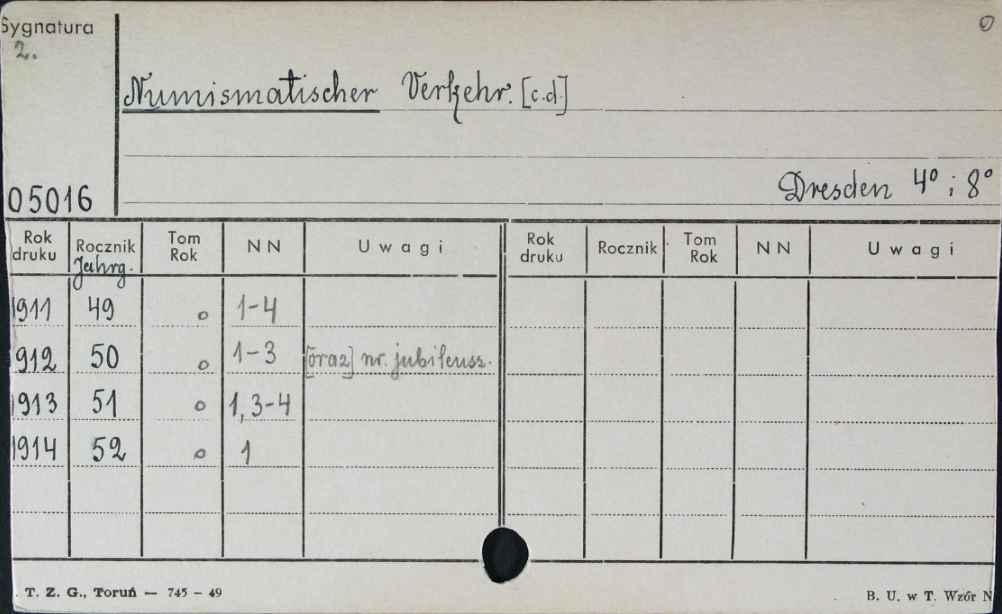 Sygnatura
2.
Numismatischer Verkehr. [c.d.]
Dresden 4° i 8°
05016
Rok druku Rocznik Jahrg. Tom Rok NN Uwagi Rok druku Rocznik Tom Rok NN Uwagi
1911 49 o 1-4
1912 50 o 1-3 [oraz] nr. jubileusz.
1913 51 o 1, 3-4
1914 52 o 1
T. Z. G., Toruń — 745 - 49
B. U. w T. Wzór N